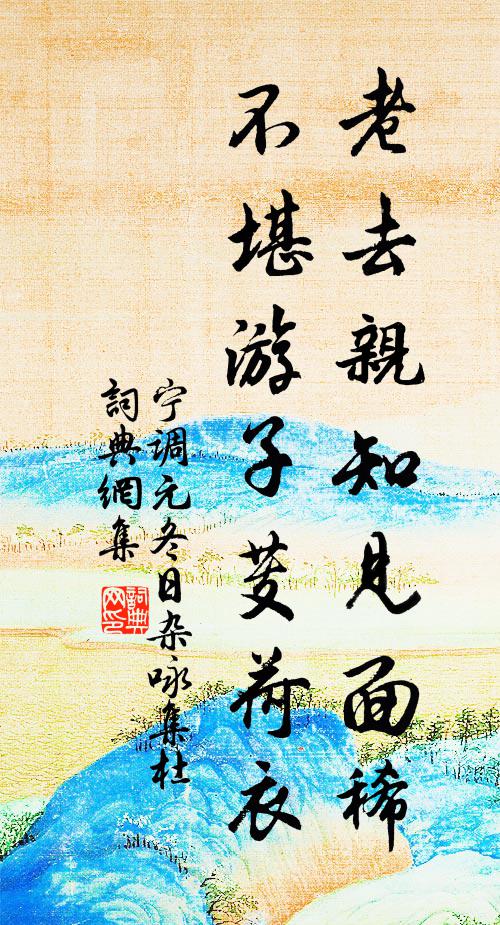 老去親知見面稀
不堪游子芰荷衣
宁调元冬日杂咏集杜
詞典網集
詞典网印